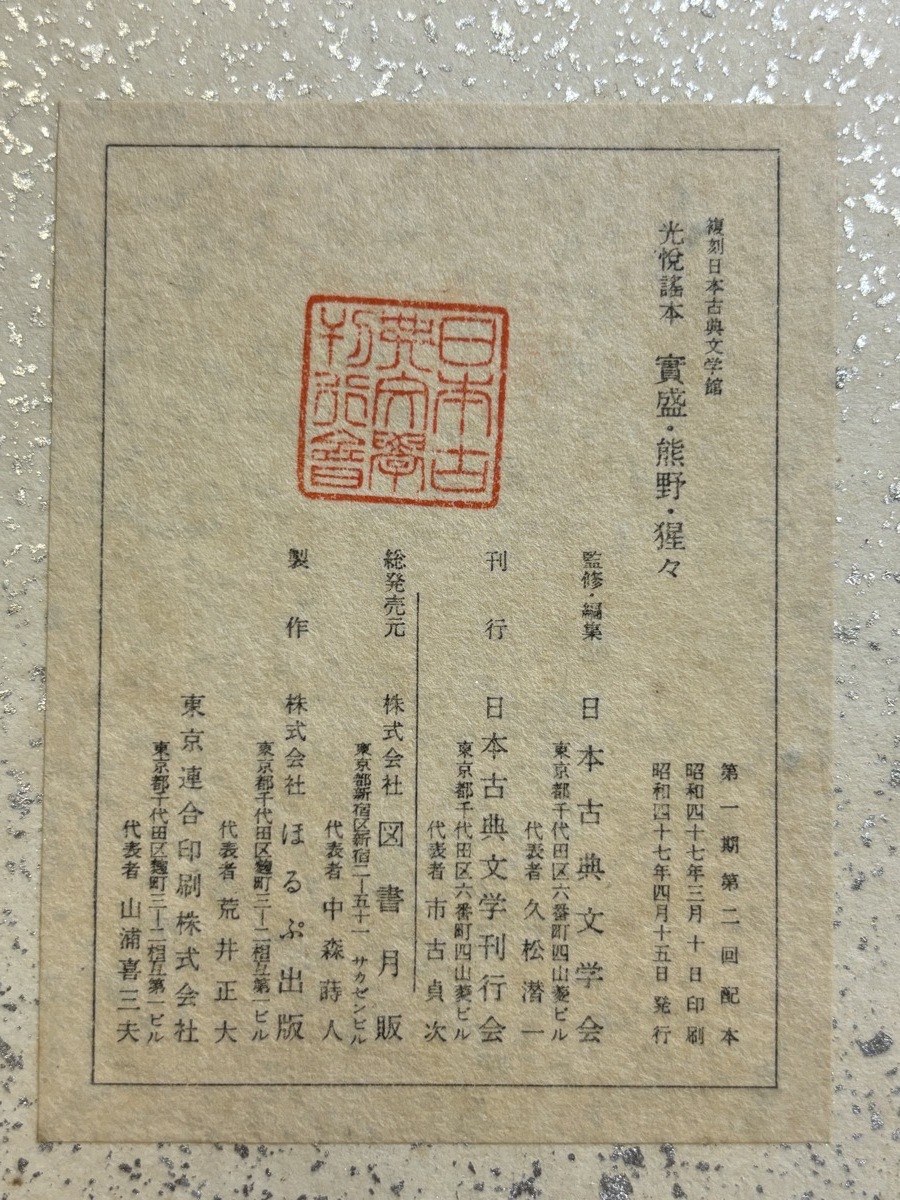 複刻日本古典文学館
光悦謠本 實盛・熊野・猩々
第一期第二回配本
昭和四十七年三月十日印刷
昭和四十七年四月十五日発行
監修・編集 日本古典文学会
東京都千代田区六番町四山菱ビル
代表者 久松潜一
刊行 日本古典文学刊行会
東京都千代田区六番町四山菱ビル
代表者 市古貞次
総発売元 株式会社 図書月販
東京都新宿区新宿二ー五十一 サカゼンビル
代表者 中森蒔人
製作 株式会社 ほるぷ出版
東京都千代田区麹町三ー二相互第一ビル
代表者 荒井正大
東京連合印刷株式会社
東京都千代田区麹町三ー二相互第一ビル
代表者 山浦喜三夫
日本古
典文學
刊行會